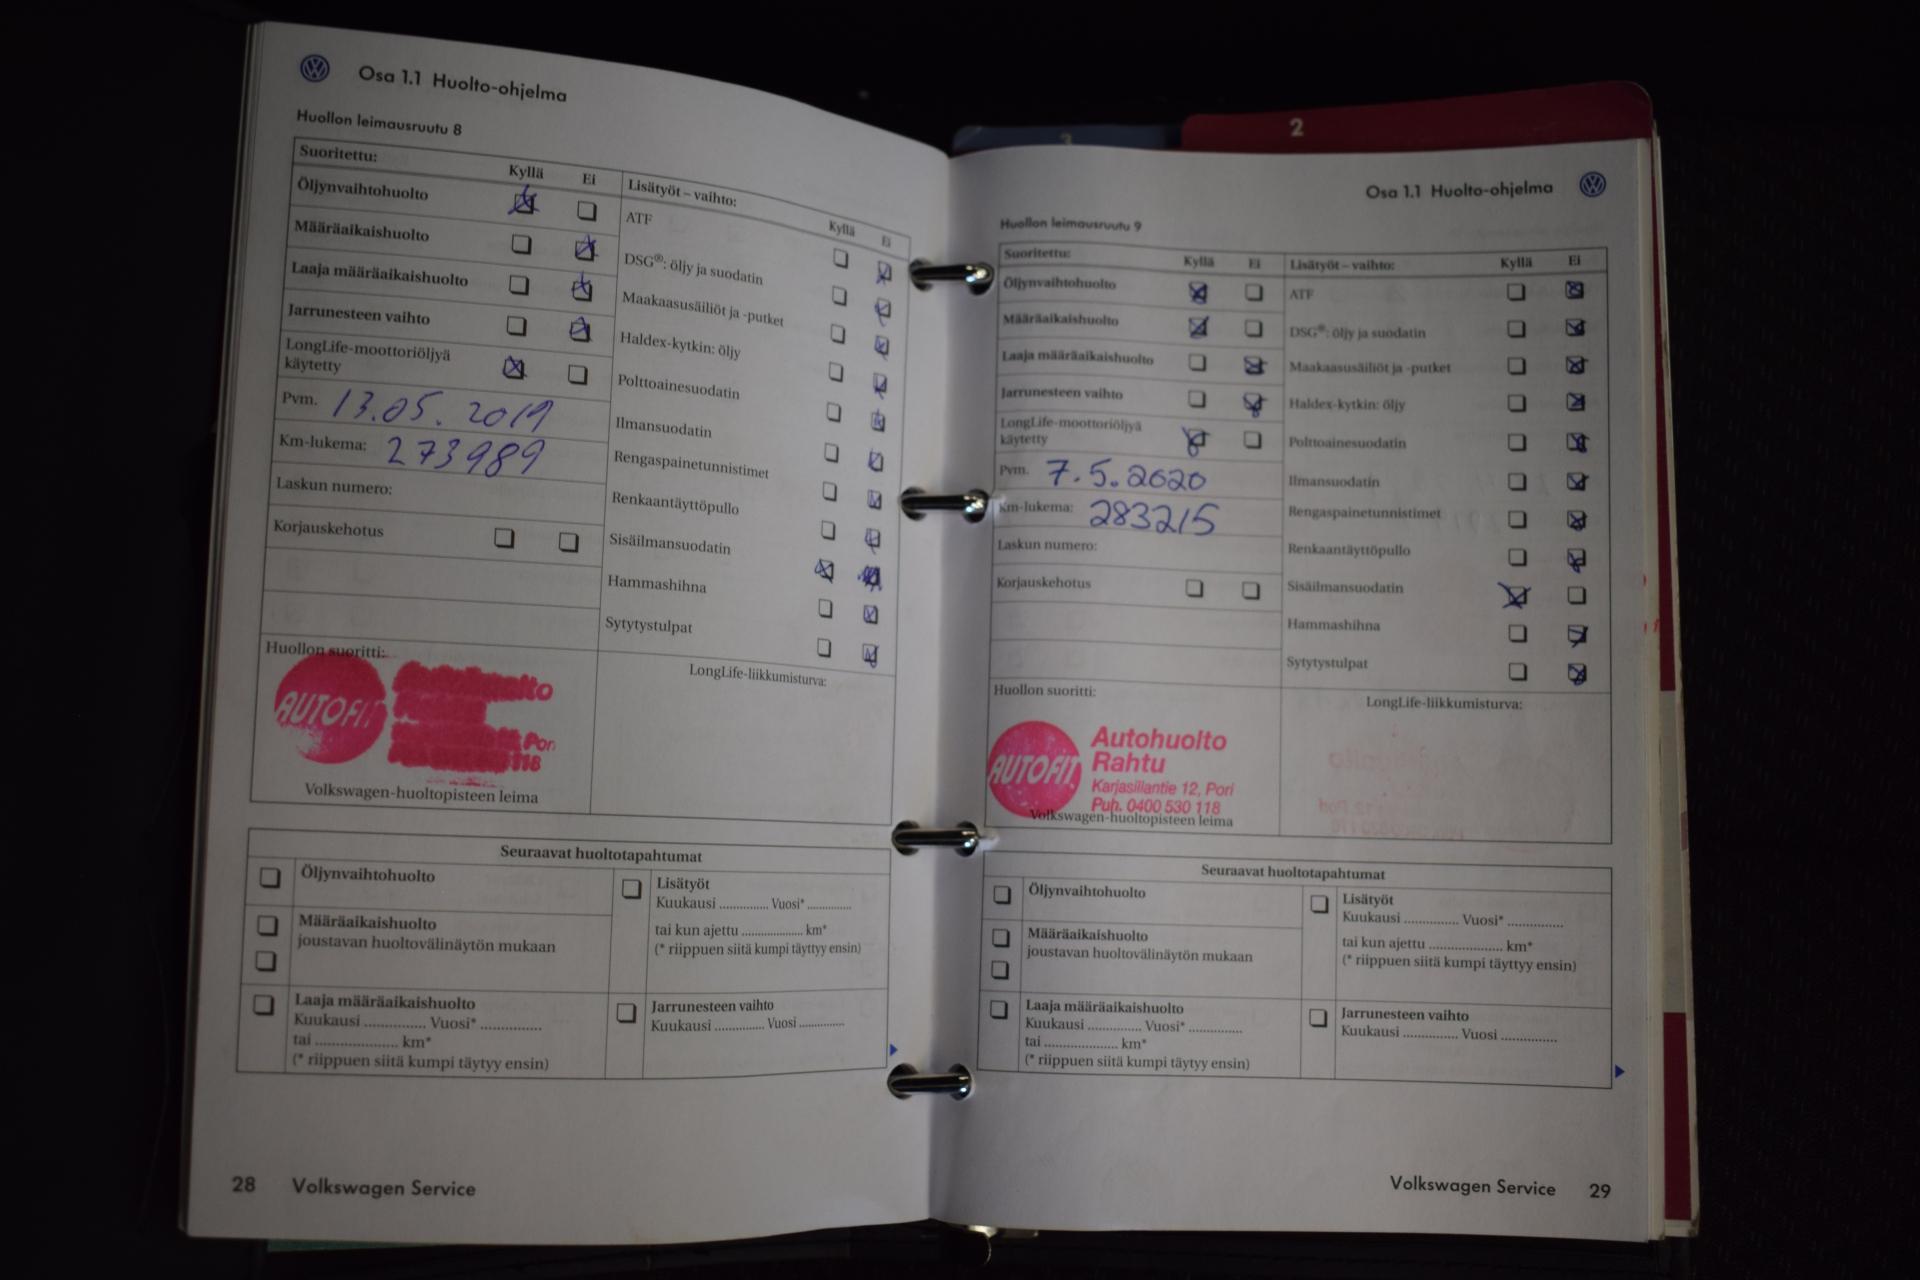 Osa 1.1 Huolto-ohjelma
Huollon leimausruutu 8
Suoritettu: Kyllä Ei
Öljynvaihtohuolto
Määräaikaishuolto
Laaja määräaikaishuolto
Jarrunesteen vaihto
LongLife-moottoriöljyä
käytetty
Pvm. 13.05.2019
Km-lukema: 273989
Laskun numero:
Korjauskehotus
Lisätyöt – vaihto: Kyllä Ei
ATF
DSG®: öljy ja suodatin
Maakaasusäiliöt ja -putket
Haldex-kytkin: öljy
Polttoainesuodatin
Ilmansuodatin
Rengaspainetunnistimet
Renkaantäyttöpullo
Sisäilmansuodatin
Hammashihna
Sytytystulpat
Huollon suoritti:
AUTOFIT
Pori
118
Volkswagen-huoltopisteen leima
LongLife-liikkumisturva:
Seuraavat huoltotapahtumat
Öljynvaihtohuolto
Määräaikaishuolto
joustavan huoltovälinäytön mukaan
Laaja määräaikaishuolto
Kuukausi ............... Vuosi* ...............
tai .................... km*
(* riippuen siitä kumpi täytyy ensin)
Lisätyöt
Kuukausi ............... Vuosi* ...............
tai kun ajettu .................... km*
(* riippuen siitä kumpi täyttyy ensin)
Jarrunesteen vaihto
Kuukausi ............... Vuosi ...............
28 Volkswagen Service
2
3
Osa 1.1 Huolto-ohjelma
Huollon leimausruutu 9
Suoritettu: Kyllä Ei
Öljynvaihtohuolto
Määräaikaishuolto
Laaja määräaikaishuolto
Jarrunesteen vaihto
LongLife-moottoriöljyä
käytetty
Pvm. 7.5.2020
Km-lukema: 283215
Laskun numero:
Korjauskehotus
Lisätyöt – vaihto: Kyllä Ei
ATF
DSG®: öljy ja suodatin
Maakaasusäiliöt ja -putket
Haldex-kytkin: öljy
Polttoainesuodatin
Ilmansuodatin
Rengaspainetunnistimet
Renkaantäyttöpullo
Sisäilmansuodatin
Hammashihna
Sytytystulpat
Huollon suoritti:
AUTOFIT
Autohuolto
Rahtu
Karjasillantie 12, Pori
Puh. 0400 530 118
Volkswagen-huoltopisteen leima
LongLife-liikkumisturva:
Seuraavat huoltotapahtumat
Öljynvaihtohuolto
Määräaikaishuolto
joustavan huoltovälinäytön mukaan
Laaja määräaikaishuolto
Kuukausi ............... Vuosi* ...............
tai .................... km*
(* riippuen siitä kumpi täytyy ensin)
Lisätyöt
Kuukausi ............... Vuosi* ...............
tai kun ajettu .................... km*
(* riippuen siitä kumpi täyttyy ensin)
Jarrunesteen vaihto
Kuukausi ............... Vuosi ...............
Volkswagen Service 29